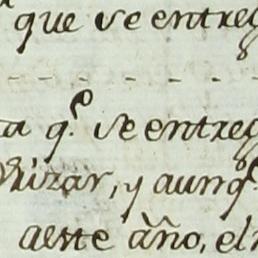 que se entreg
ta q.e se entreg
rizar, y aunq.e
aeste año, el